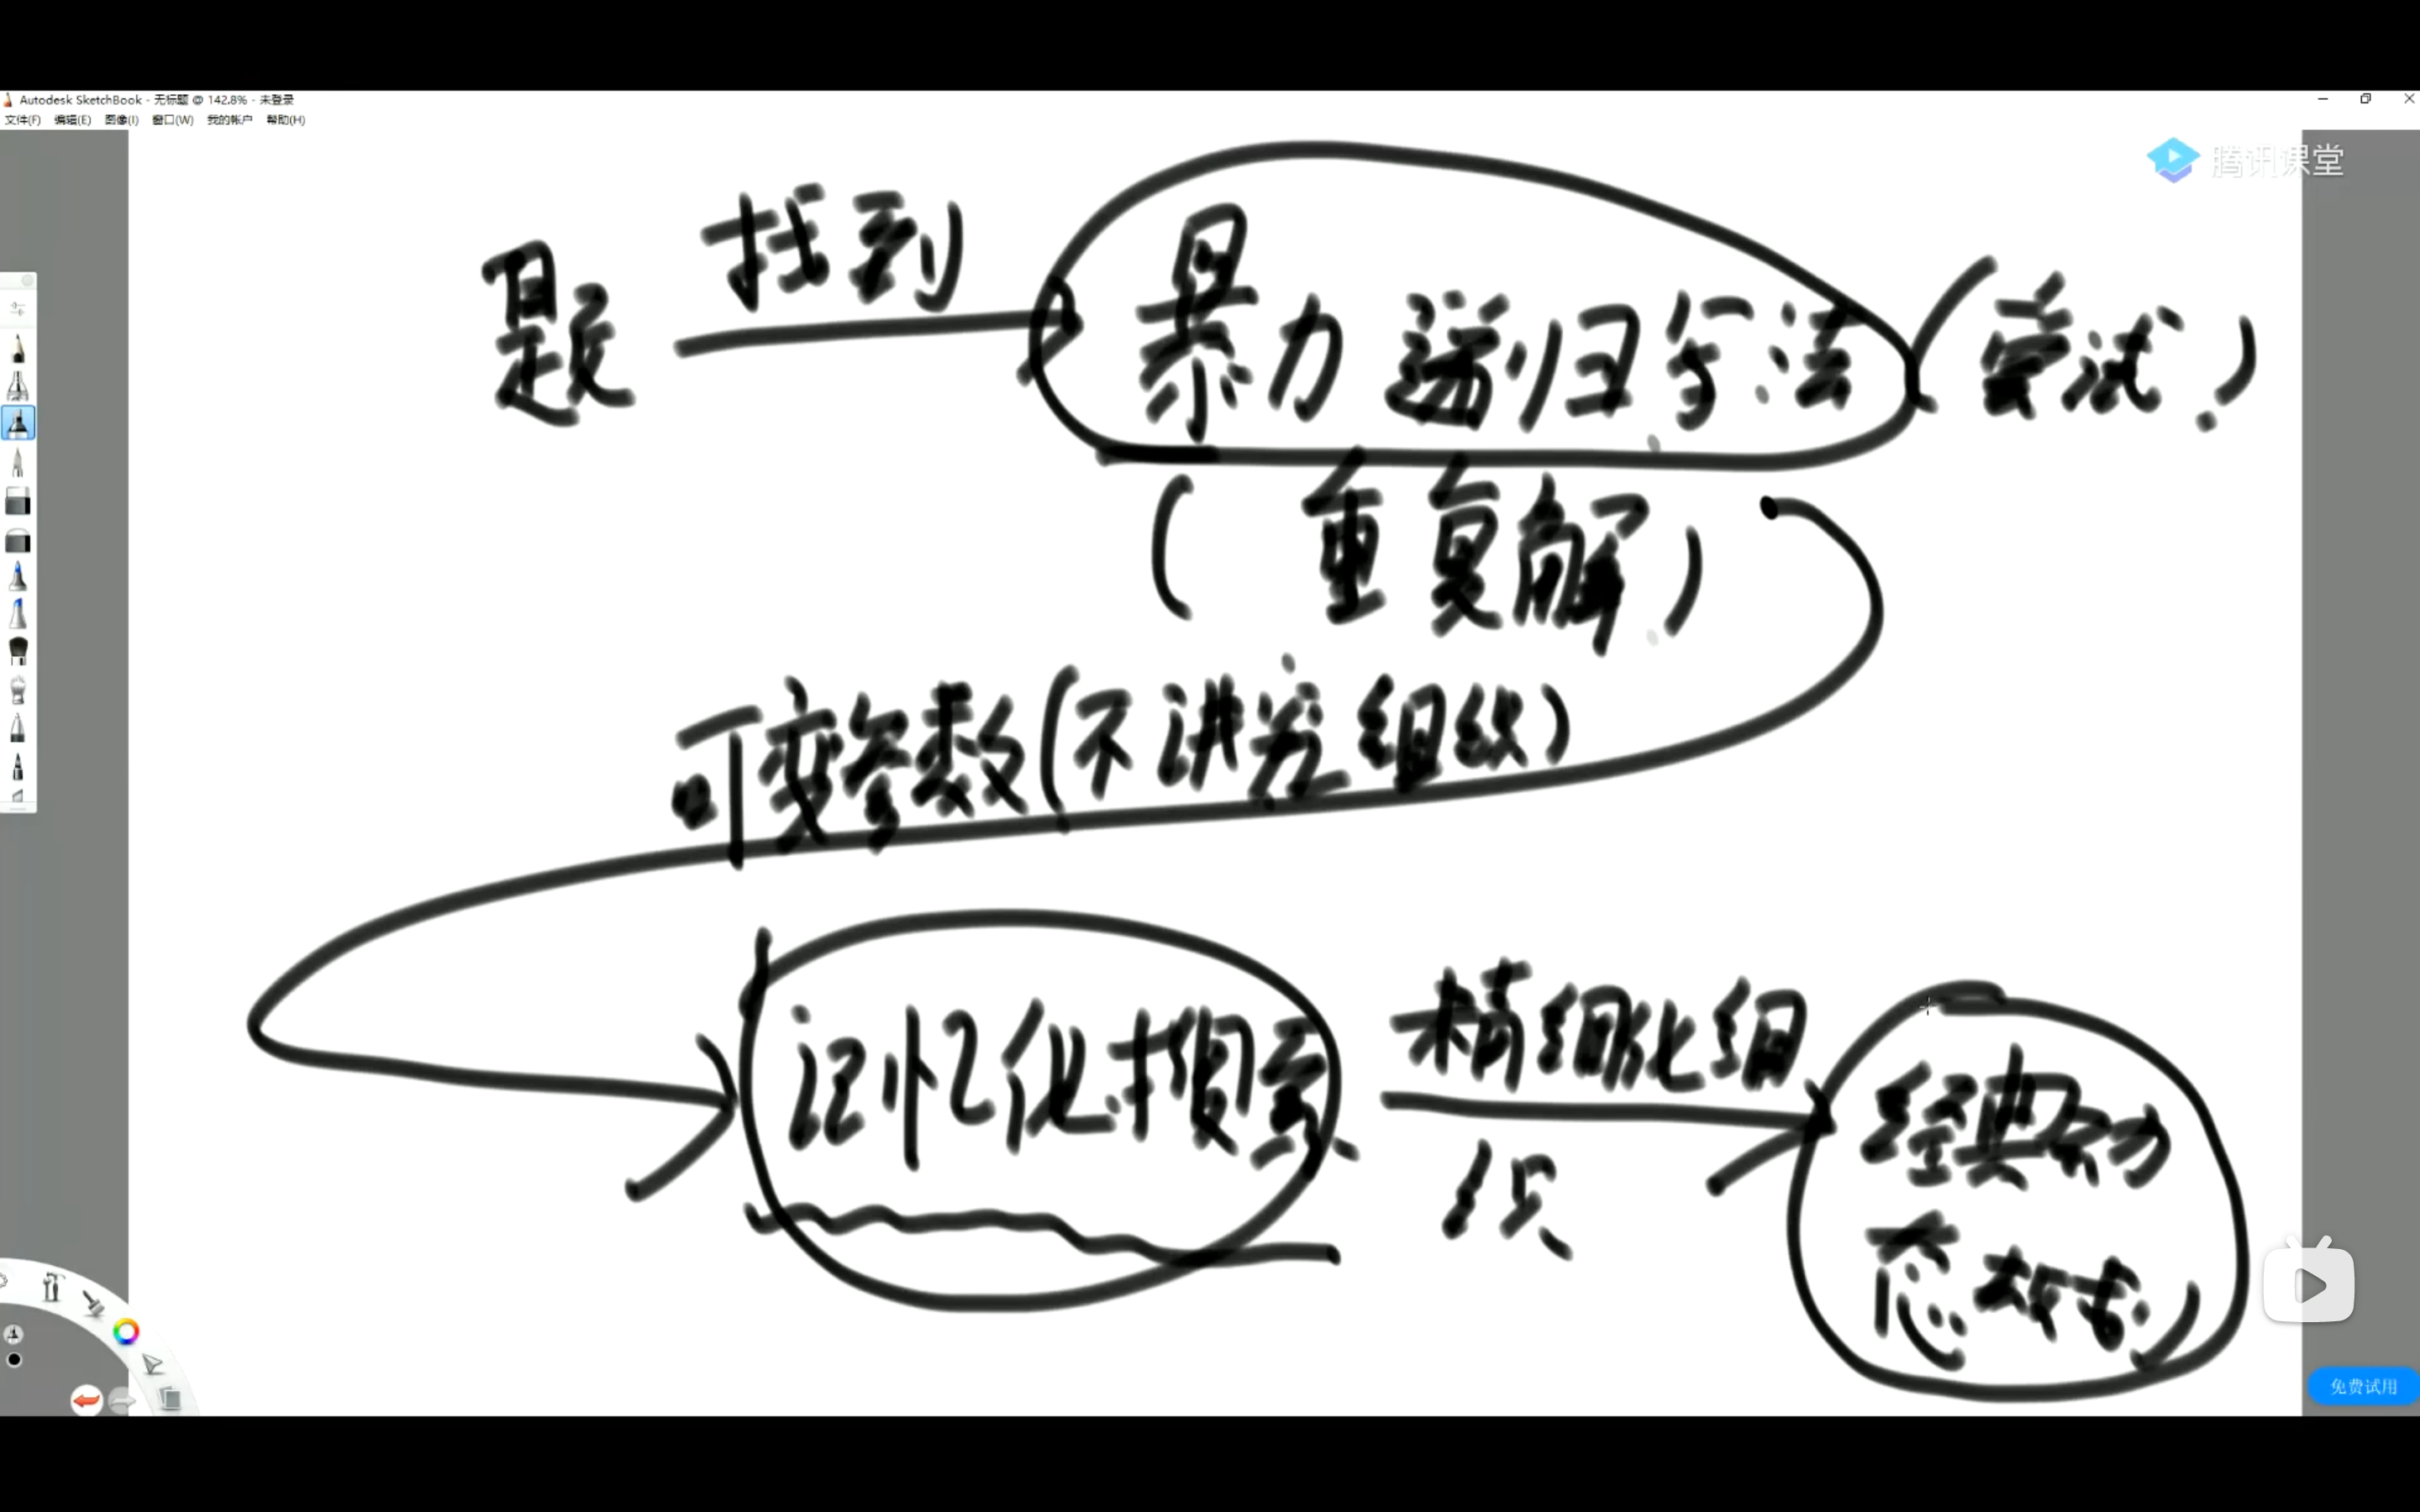 Autodesk SketchBook - 无标题 @ 142.8% - 未登录
文件(F) 编辑(E) 图像(I) 窗口(W) 我的帐户 帮助(H)
腾讯课堂
题 找到 暴力递归写法 (尝试!)
(重复解)
可变参数(不讲究组织)
记忆化搜索 精细化组织 经典动态规划
免费试用